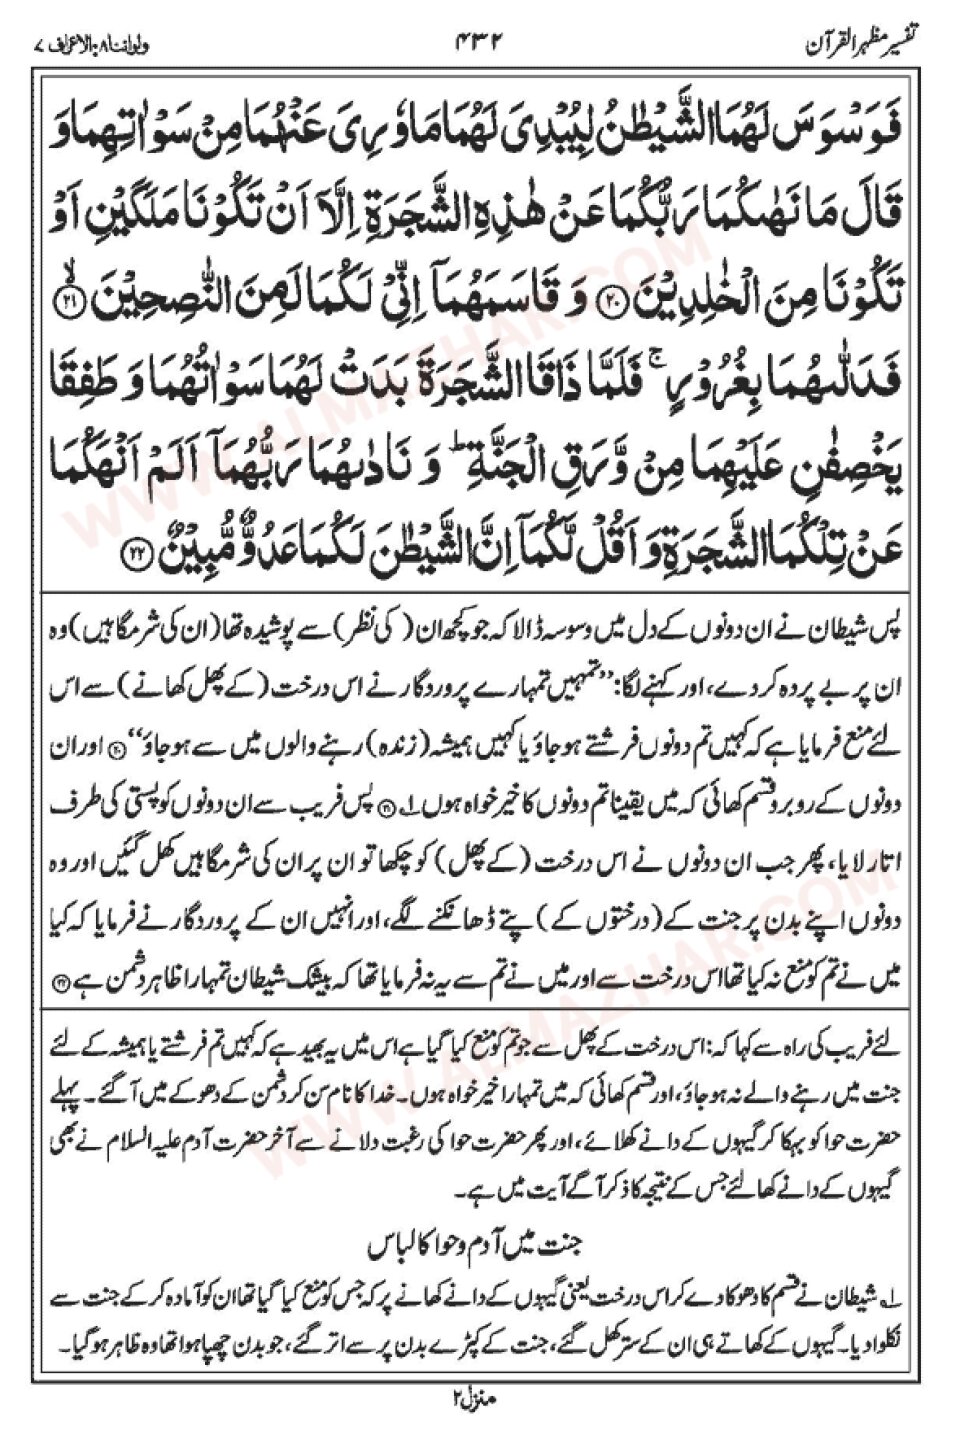 تفسیر مظہر القرآن
۴۳۲
ولواننا ۸: الاعراف ۷
فَوَسْوَسَ لَهُمَا الشَّيْطٰنُ لِيُبْدِيَ لَهُمَا مَا وٗرِيَ عَنْهُمَا مِنْ سَوْاٰتِهِمَا وَ
قَالَ مَا نَهٰىكُمَا رَبُّكُمَا عَنْ هٰذِهِ الشَّجَرَةِ اِلَّاۤ اَنْ تَكُوْنَا مَلَكَيْنِ اَوْ
تَكُوْنَا مِنَ الْخٰلِدِيْنَ ۲۰ وَ قَاسَمَهُمَاۤ اِنِّيْ لَكُمَا لَمِنَ النّٰصِحِيْنَ ۙ ۲۱
فَدَلّٰىهُمَا بِغُرُوْرٍ ۚ فَلَمَّا ذَاقَا الشَّجَرَةَ بَدَتْ لَهُمَا سَوْاٰتُهُمَا وَ طَفِقَا
يَخْصِفٰنِ عَلَيْهِمَا مِنْ وَّرَقِ الْجَنَّةِ ؕ وَ نَادٰىهُمَا رَبُّهُمَاۤ اَلَمْ اَنْهَكُمَا
عَنْ تِلْكُمَا الشَّجَرَةِ وَ اَقُلْ لَّكُمَاۤ اِنَّ الشَّيْطٰنَ لَكُمَا عَدُوٌّ مُّبِيْنٌ ۲۲
پس شیطان نے ان دونوں کے دل میں وسوسہ ڈالا کہ جو کچھ ان ( کی نظر) سے پوشیدہ تھا (ان کی شرمگاہیں) وہ
ان پر بے پردہ کر دے، اور کہنے لگا: ’’تمہیں تمہارے پروردگار نے اس درخت (کے پھل کھانے) سے اس
لئے منع فرمایا ہے کہ کہیں تم دونوں فرشتے ہو جاؤ یا کہیں ہمیشہ (زندہ) رہنے والوں میں سے ہو جاؤ‘‘ ۲۰ اور ان
دونوں کے روبرو قسم کھائی کہ میں یقینا تم دونوں کا خیر خواہ ہوں ۱؎ ۲۱ پس فریب سے ان دونوں کو پستی کی طرف
اتار لایا، پھر جب ان دونوں نے اس درخت (کے پھل) کو چکھا تو ان پر ان کی شرمگاہیں کھل گئیں اور وہ
دونوں اپنے بدن پر جنت کے (درختوں کے) پتے ڈھانکنے لگے، اور انہیں ان کے پروردگار نے فرمایا کہ کیا
میں نے تم کو منع نہ کیا تھا اس درخت سے اور میں نے تم سے یہ نہ فرمایا تھا کہ بیشک شیطان تمہارا ظاہر دشمن ہے ۲۲
لئے فریب کی راہ سے کہا کہ: اس درخت کے پھل سے جو تم کو منع کیا گیا ہے اس میں یہ بھید ہے کہ کہیں تم فرشتے یا ہمیشہ کے لئے
جنت میں رہنے والے نہ ہو جاؤ، اور قسم کھائی کہ میں تمہارا خیر خواہ ہوں۔ خدا کا نام سن کر دشمن کے دھوکے میں آ گئے۔ پہلے
حضرت حوا کو بہکا کر گیہوں کے دانے کھلائے، اور پھر حضرت حوا کی رغبت دلانے سے آخر حضرت آدم علیہ السلام نے بھی
گیہوں کے دانے کھا لئے جس کے نتیجہ کا ذکر آگے آیت میں ہے۔
جنت میں آدم و حوا کا لباس
۱؎ شیطان نے قسم کا دھوکا دے کر اس درخت یعنی گیہوں کے دانے کھانے پر کہ جس کو منع کیا گیا تھا ان کو آمادہ کر کے جنت سے
نکلوا دیا۔ گیہوں کے کھاتے ہی ان کے ستر کھل گئے، جنت کے کپڑے بدن پر سے اتر گئے، جو بدن چھپا ہوا تھا وہ ظاہر ہو گیا۔
منزل ۲
WWW.ALMAZHAR.COM
WWW.ALMAZHAR.COM